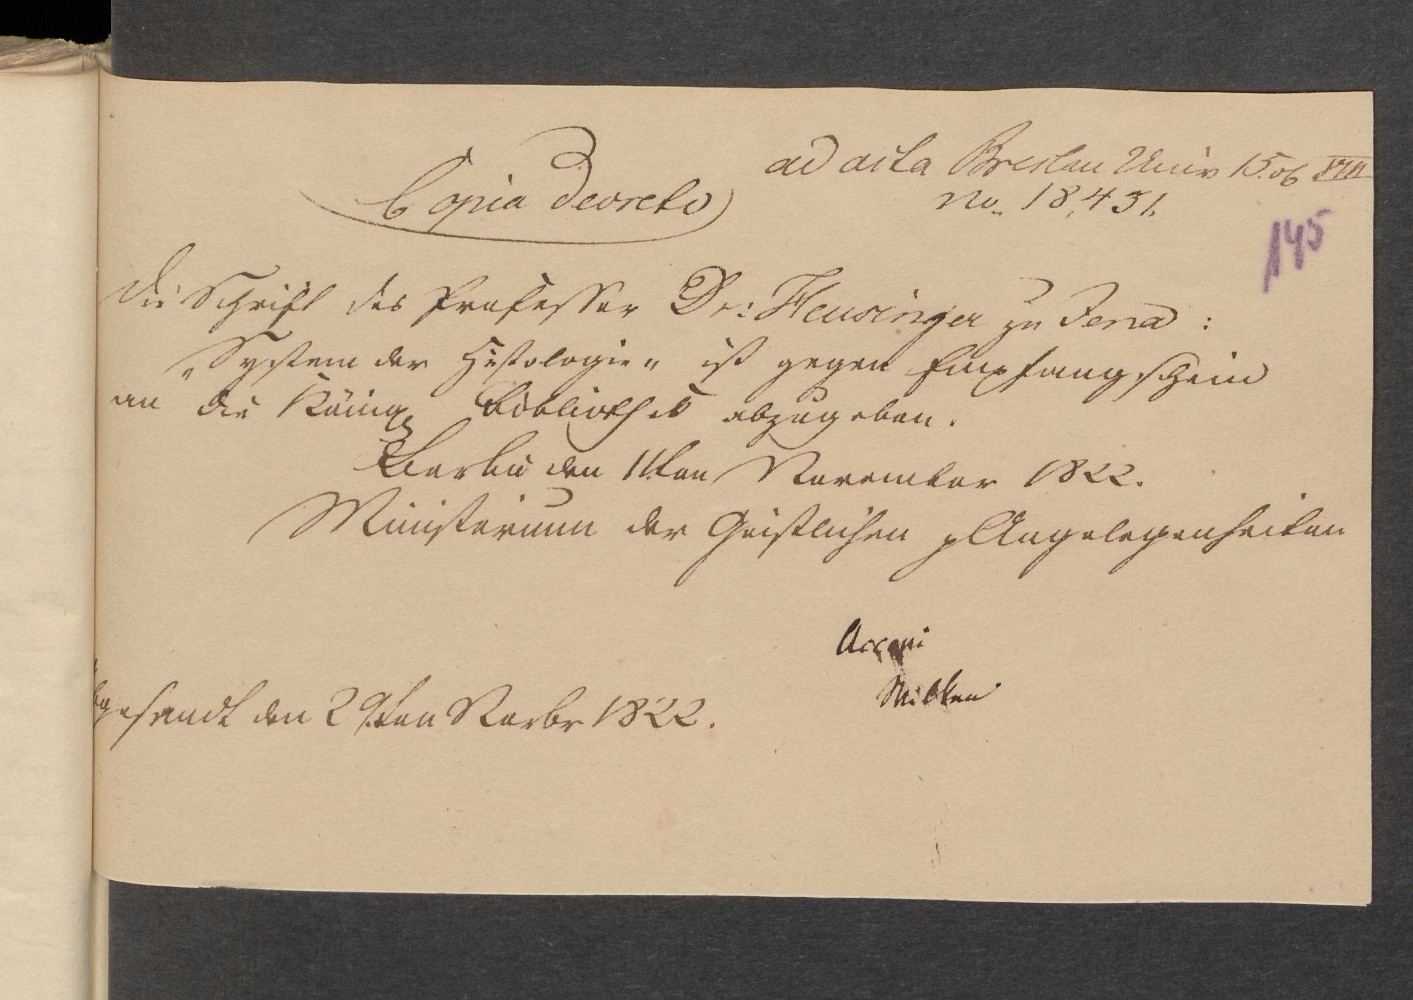 ad acta Breslau Univ 15.06 VIII
Copia Decreti
No. 18,431.
145
Die Schrift des Professor Dr: Heusinger zu Jena:
„System der Histologie„ ist gegen Empfangschein
an die Königl Bibliothek abzugeben.
Berlin den 11ten November 1822.
Ministerium der Geistlichen p Angelegenheiten
Accepi
Wilken
abgesandt den 29ten Novbr 1822.